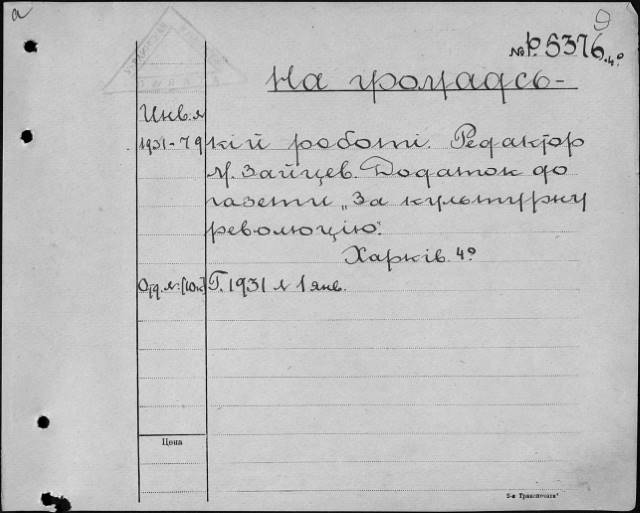 а
№ Р.5376.4º
На громадсь-
Инв. №
1931-79 кій роботі. Редактор
М. Зайцев. Додаток до
газети „За культурну
революцію".
Харків. 4º
Отд. №: [10к] Г. 1931 № 1 янв.
Цена